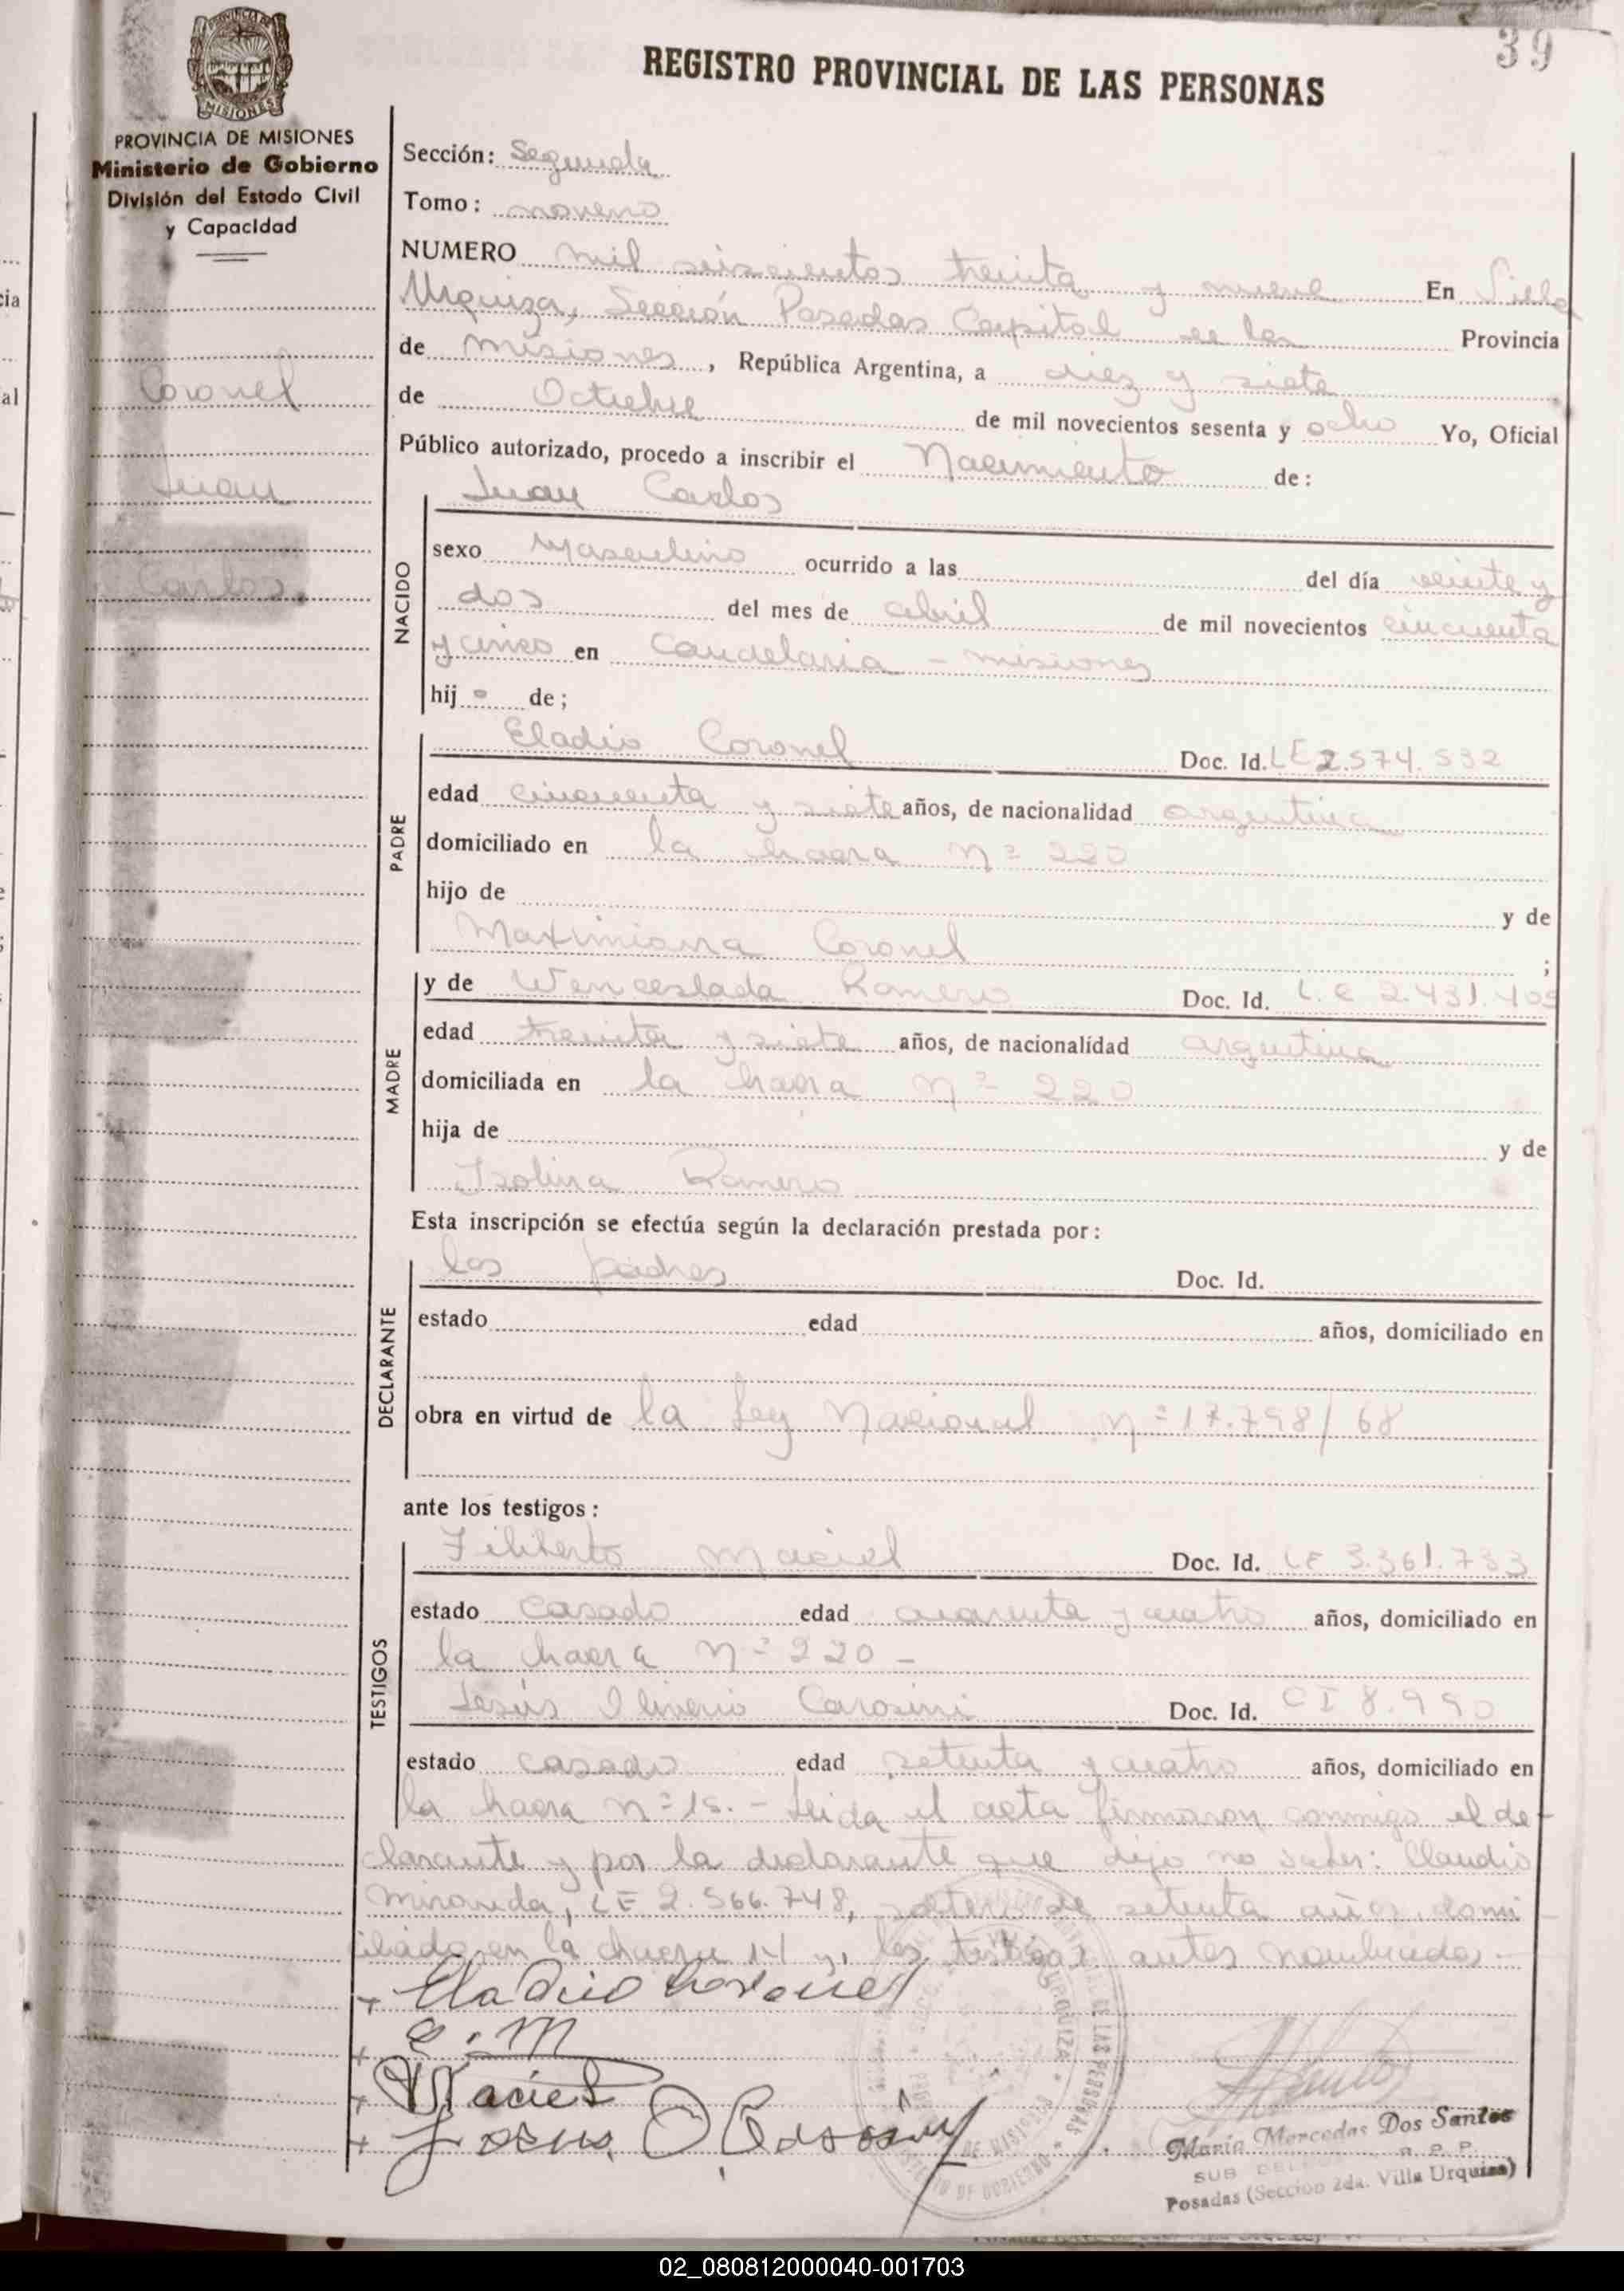 39
REGISTRO PROVINCIAL DE LAS PERSONAS
PROVINCIA DE MISIONES
Ministerio de Gobierno
División del Estado Civil
y Capacidad
Coronel
Juan
Carlos.
Sección: Segunda
Tomo: noveno
NUMERO mil seiscientos treinta y nueve En Villa
Urquiza, Sección Posadas Capital de la Provincia
de Misiones, República Argentina, a diez y siete
de Octubre de mil novecientos sesenta y ocho Yo, Oficial
Público autorizado, procedo a inscribir el Nacimiento de:
NACIDO
Juan Carlos
sexo Masculino ocurrido a las del día veinte y
dos del mes de abril de mil novecientos cincuenta
y cinco en Candelaria - misiones
hijo de;
PADRE
Eladio Coronel Doc. Id. LE 2.574.532
edad cincuenta y siete años, de nacionalidad argentina
domiciliado en la chacra nº 220
hijo de y de
Maximiana Coronel ;
MADRE
y de Wenceslada Romero Doc. Id. L.C 2.431.405
edad treinta y siete años, de nacionalidad argentina
domiciliada en la chacra nº 220
hija de y de
Isolina Romero
Esta inscripción se efectúa según la declaración prestada por:
DECLARANTE
los padres Doc. Id.
estado edad años, domiciliado en
obra en virtud de la Ley Nacional nº 17.798/68
ante los testigos:
TESTIGOS
Filiberto Maciel Doc. Id. LE 3.361.733
estado casado edad cuarenta y cuatro años, domiciliado en
la chacra nº 220 -
Jesús Oliverio Carosini Doc. Id. CI 8.990
estado casado edad setenta y cuatro años, domiciliado en
la chacra nº 15. - Leida el acta firmaron conmigo el de-
clarante y por la declarante que dijo no saber: Claudio
Miranda, LE 2.566.748, soltero de setenta años, domi
ciliado en la chacra 141 y, los testigos antes nombrados.-
+ Eladio Coronel
+ C. M
+ Maciel
+ Jesus O Carosini
Maria Mercedes Dos Santos
SUB R.P.P.
Posadas (Seccion 2da. Villa Urquiza)
02_080812000040-001703